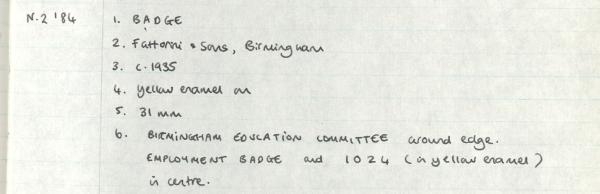 N.2 '84 1. BADGE
2. Fattorini & Sons, Birmingham
3. c.1935
4. yellow enamel on
5. 31 mm
6. BIRMINGHAM EDUCATION COMMITTEE around edge.
EMPLOYMENT BADGE and 1024 (in yellow enamel)
in centre.